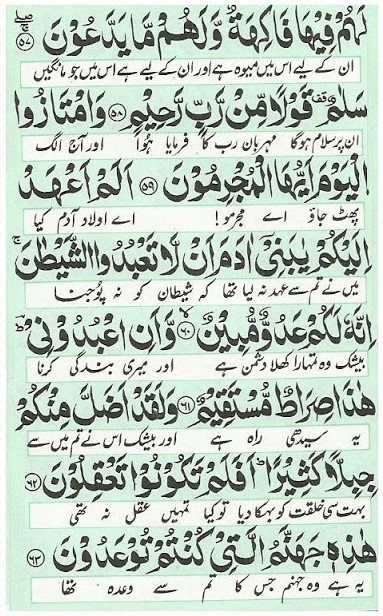 لَهُمْ فِيْهَا فَاكِهَةٌ وَّلَهُمْ مَّا يَدَّعُوْنَ ۝٥٧
ان کے لیے اس میں میوہ ہے اور ان کے لیے ہے اس میں جو مانگیں
سَلٰمٌ قف قَوْلًا مِّنْ رَّبٍّ رَّحِيْمٍ ۝٥٨ وَامْتَازُوا
ان پر سلام ہوگا مہربان رب کا فرمایا ہوا اور آج الگ
الْيَوْمَ اَيُّهَا الْمُجْرِمُوْنَ ۝٥٩ اَلَمْ اَعْهَدْ
پھٹ جاؤ اے مجرمو! اے اولاد آدم کیا
اِلَيْكُمْ يٰبَنِيْٓ اٰدَمَ اَنْ لَّا تَعْبُدُوا الشَّيْطٰنَ ۚ
میں نے تم سے عہد نہ لیا تھا کہ شیطان کو نہ پوجنا
اِنَّهٗ لَكُمْ عَدُوٌّ مُّبِيْنٌ ۝٦٠ وَّاَنِ اعْبُدُوْنِيْ ؕ
بیشک وہ تمہارا کھلا دشمن ہے اور میری بندگی کرنا
هٰذَا صِرَاطٌ مُّسْتَقِيْمٌ ۝٦١ وَلَقَدْ اَضَلَّ مِنْكُمْ
یہ سیدھی راہ ہے اور بیشک اس نے تم میں سے
جِبِلًّا كَثِيْرًا ؕ اَفَلَمْ تَكُوْنُوْا تَعْقِلُوْنَ ۝٦٢
بہت سی خلقت کو بہکا دیا تو کیا تمہیں عقل نہ تھی
هٰذِهٖ جَهَنَّمُ الَّتِيْ كُنْتُمْ تُوْعَدُوْنَ ۝٦٣
یہ ہے وہ جہنم جس کا تم سے وعدہ تھا